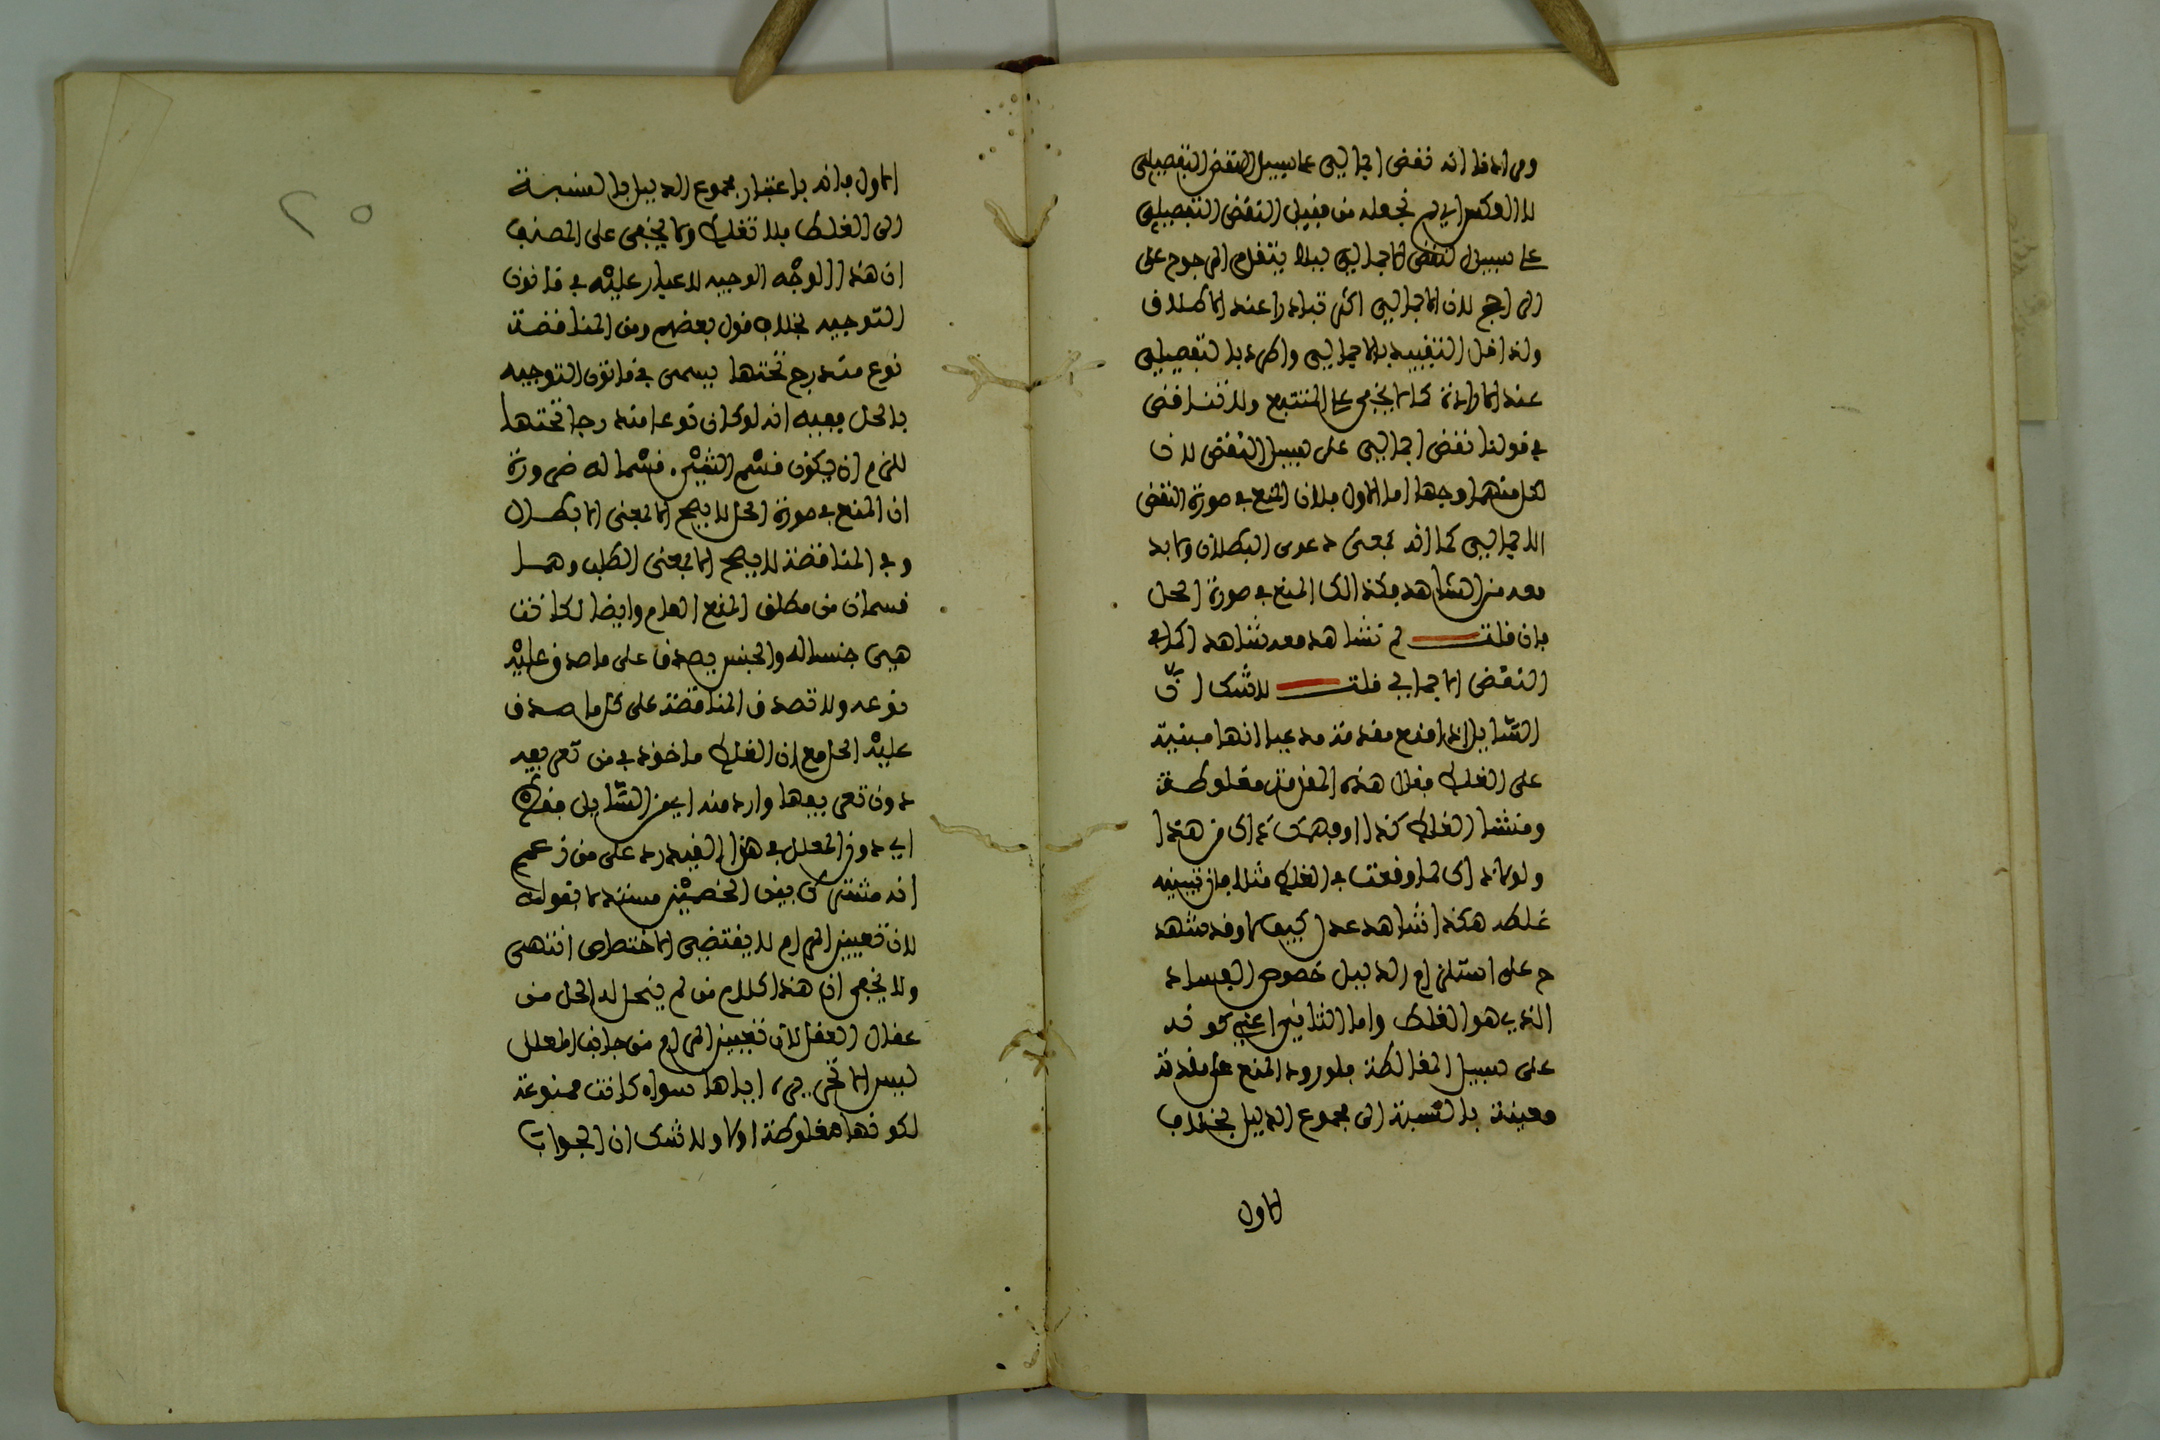 ومرادنا انه نقض اجمالي على سبيل النقض التفصيلي
لا العكس اي لم نجعله من قبيل النقض التفصيلي
على سبيل النقض الاجمالي ليلا يتقدم المرجوح على
الراجح لان الاجمالي اكثر تبادرا عند الاطلاق
ولذا قل التقييد بالاجمالي واطرد بالتفصيلي
عند الارادة كما لا يخفى على المتتبع ولا تناقض
في قولنا نقض اجمالي على سبيل النقض لان
لكل منهما وجها اما الاول فلان المنع في صورة النقض
الاجمالي كما انه بمعنى دعوى البطلان ولا بد
معه من الشاهد فكذالك المنع في صورة الحل
فان قلت لم نشاهد معه شاهد اكما في
النقض الاجمالي قلت لا شك ان
السايل اذا منع مقدمة مدعيا انها مبنية
على الغلط فقال هذه المقدمة مغلوطة
ومنشا الغلط كذا او فهمت ذاك من هذا
ولولا ذاك لما وقعت في الغلط مثلا فان تبيينه
غلطه هكذا شاهد عدل كيف لا وقد شهد
م على استلزام الدليل خصوص الفساد
الذي هو الغلط واما الثاني اعني كونه
على سبيل المغالطة فلورود المنع على مقدمة
معينة بالنسبة الى مجموع الدليل بخلاف
الاول
الاول فانه باعتبار مجموع الدليل بالنسبة
الى الغلط فلا تغلط ولا يخفى على المصنف
ان هذا الوجه الوجيه لا عيار عليه في قانون
التوجيه بخلاف قول بعضهم ومن المناقضة
نوع مندرج تحتها يسمى في قانون التوجيه
بالحل ففيه انه لو كان نوعا مندرجا تحتها
للزم ان يكون قسم الشيء قسما له ضرورة
ان المنع في صورة الحل لا يصح الا بمعنى الابطال
وفي المناقضة لا يصح الا بمعنى الطلب وهما
قسمان من مطلق المنع العام وايضا لكانت
هي جنسا له والجنس يصدق على ما صدق عليه
نوعه ولا تصدق المناقضة على كل ما صدق
عليه الحل مع ان الغلط ماخوذ في من تعريفه
دون تعريفها وارد منه اي من السايل فقط
اي دون المعلل في هذا القيد رد على من زعم
انه مشترك بين الخصمين مستندا بقوله
لان تعيين المرام لا يقتضي الاختصاص انتهى
ولا يخفى ان هذا كلام من لم ينحل له الحل من
عقال العقل لان تعيين المرام من جانب المعلل
ليس الا تحريره اياها سواء كانت ممنوعة
لكونها مغلوطة اولا ولا شك ان الجواب